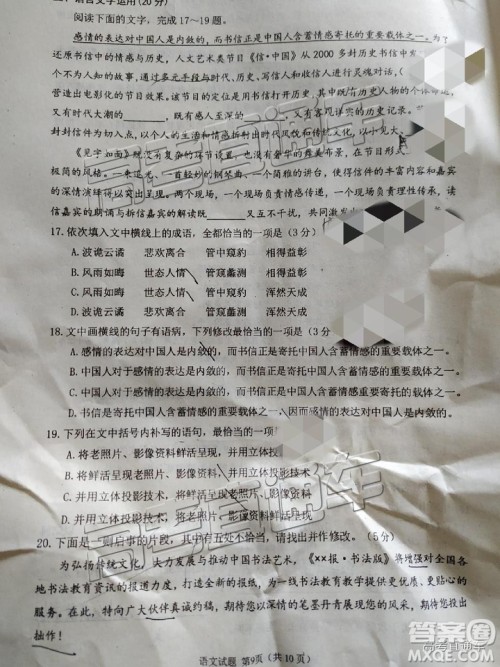 二、语言文字运用(20分)
阅读下面的文字，完成17～19题。
感情的表达对中国人是内敛的，而书信正是中国人含蓄情感寄托的重要载体之一。为
写作书信中的情感与历史，人文艺术类节目《信·中国》从2000多封历史书信中
个不为人知的故事，通过多元手段与时代、写信人和收信人进行灵魂对话，(
造出电影化的节目效果。该节目的定位是用书信打开历史，其中既有国人
又有时代大潮的，既有感人至深的，又有雅俗共赏的历史记录。
封封信件为切入点，以个人的生活和情感折射出时代风貌和传统文化，以小见大
《见字如面》既没有复杂的环节设置，也没有奢华的舞美布景，在节目形式
极简的风格。一束追光，一直轻妙的钢琴曲，一场简单的讲述，使得信件的丰富内容和嘉宾
的深情演绎得以突出呈现。两个现场，一个现场负责情感传递，一个现场负责理性传承，读
信嘉宾的朗诵与拆信嘉宾的解读既又互不干扰，共同
17.依次填入文中横线上的成语，全都恰当的一项是(3分)
A.波诡云谲 悲欢离合 管中窥豹 相得益彰
B.风雨如晦 世态人情 管窥蠡测 相得益彰
C.风雨如晦 世态人情 管中窥豹 浑然天成
D.波诡云谲 悲欢离合 管窥蠡测 浑然天成
18.文中画横线的句子有语病，下列修改最恰当的一项是(3分
A.感情的表达对中国人是内敛的，而书信正是寄托中国人含蓄情感的重要载体之一。
B.中国人对于感情的表达是内敛的，而书信正是寄托中国人含蓄情感的重要载体之一。
C.中国人对于感情的表达是内敛的，而书信正是中国人含蓄情感寄托的重要载体之一。
D.而书信是寄托中国人含蓄情感的重要载体之一，因而感情的表达对中国人是内敛的。
19.下列在文中括号内补写的语句，最恰当的一项
A.将老照片、影像资料鲜活呈现，并用立体投
B.将鲜活呈现老照片、影像资料，并用立体投影
C.并用立体投影技术，将鲜活呈现老照片、影
D.并用立体投影技术，将老照片、影像资料鲜活呈现
20.下面是一则启事的片段，其中有五处不恰当，请找出并作修改。(5分)
为弘扬传统文化，大力发展与推动中国书法艺术，《××报·书法版》将增强对全国各
地书法教育资讯的报道力度，打造全新的服务，为一线书法教育教学提供更优质、更贴心的
服务。在此，特向广大伙伴真诚约稿，期待您以深情的笔墨丹青展现自我，期待您的踊跃投出
拙作！
语文试题 第9页（共10页）